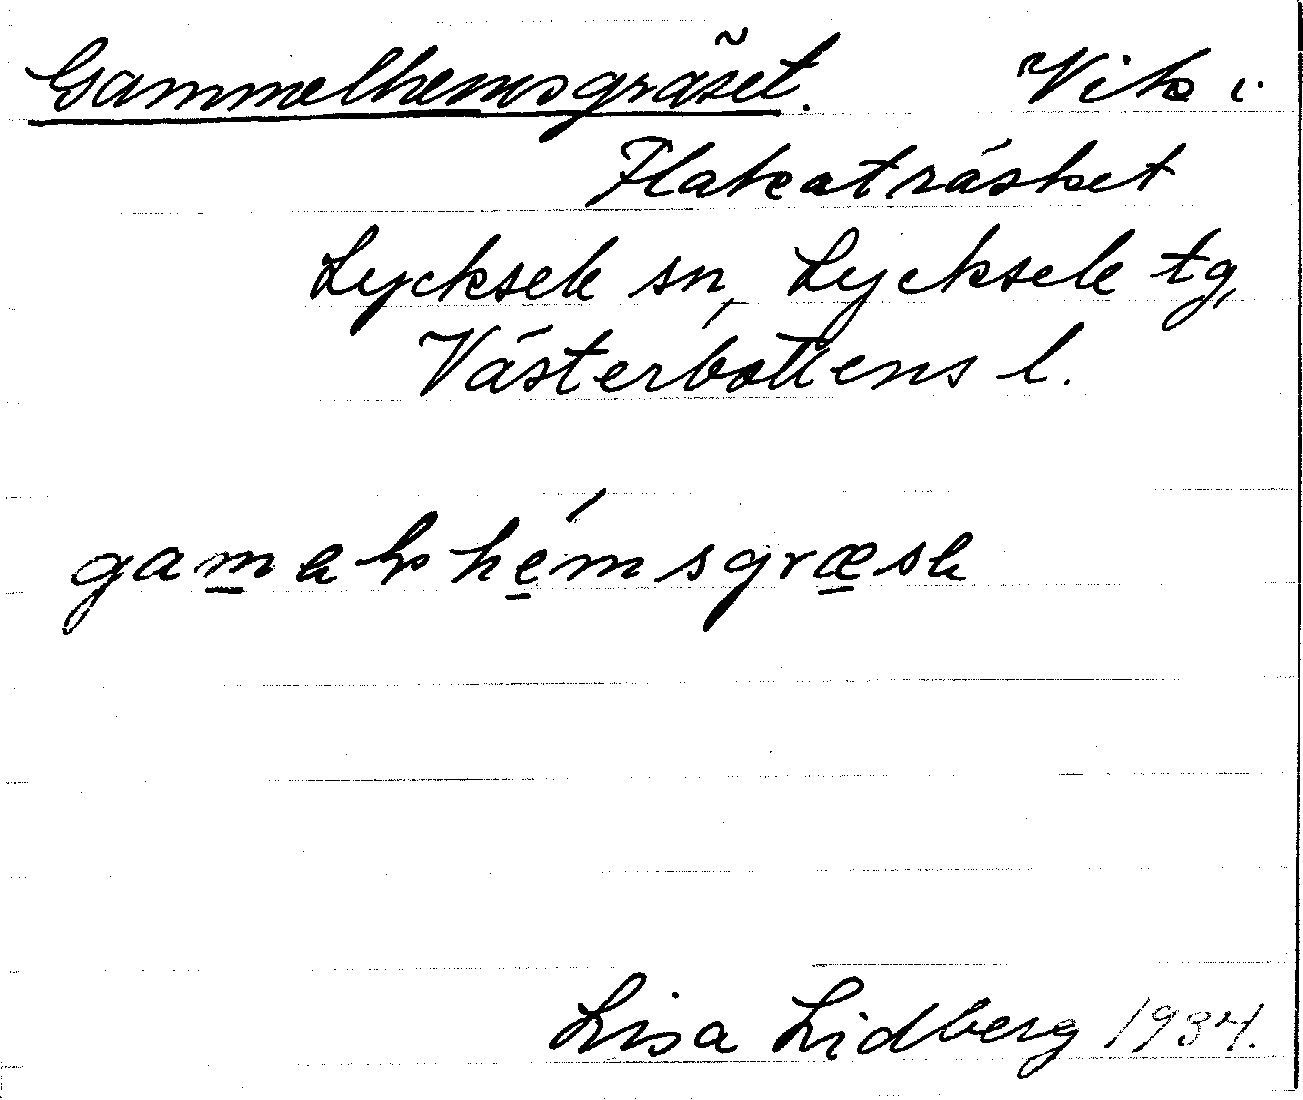 Gammelhemsgräset. Vik i
Flakaträsket
Lycksele sn, Lycksele tg,
Västerbottens l.
Lisa Lidberg 1934.